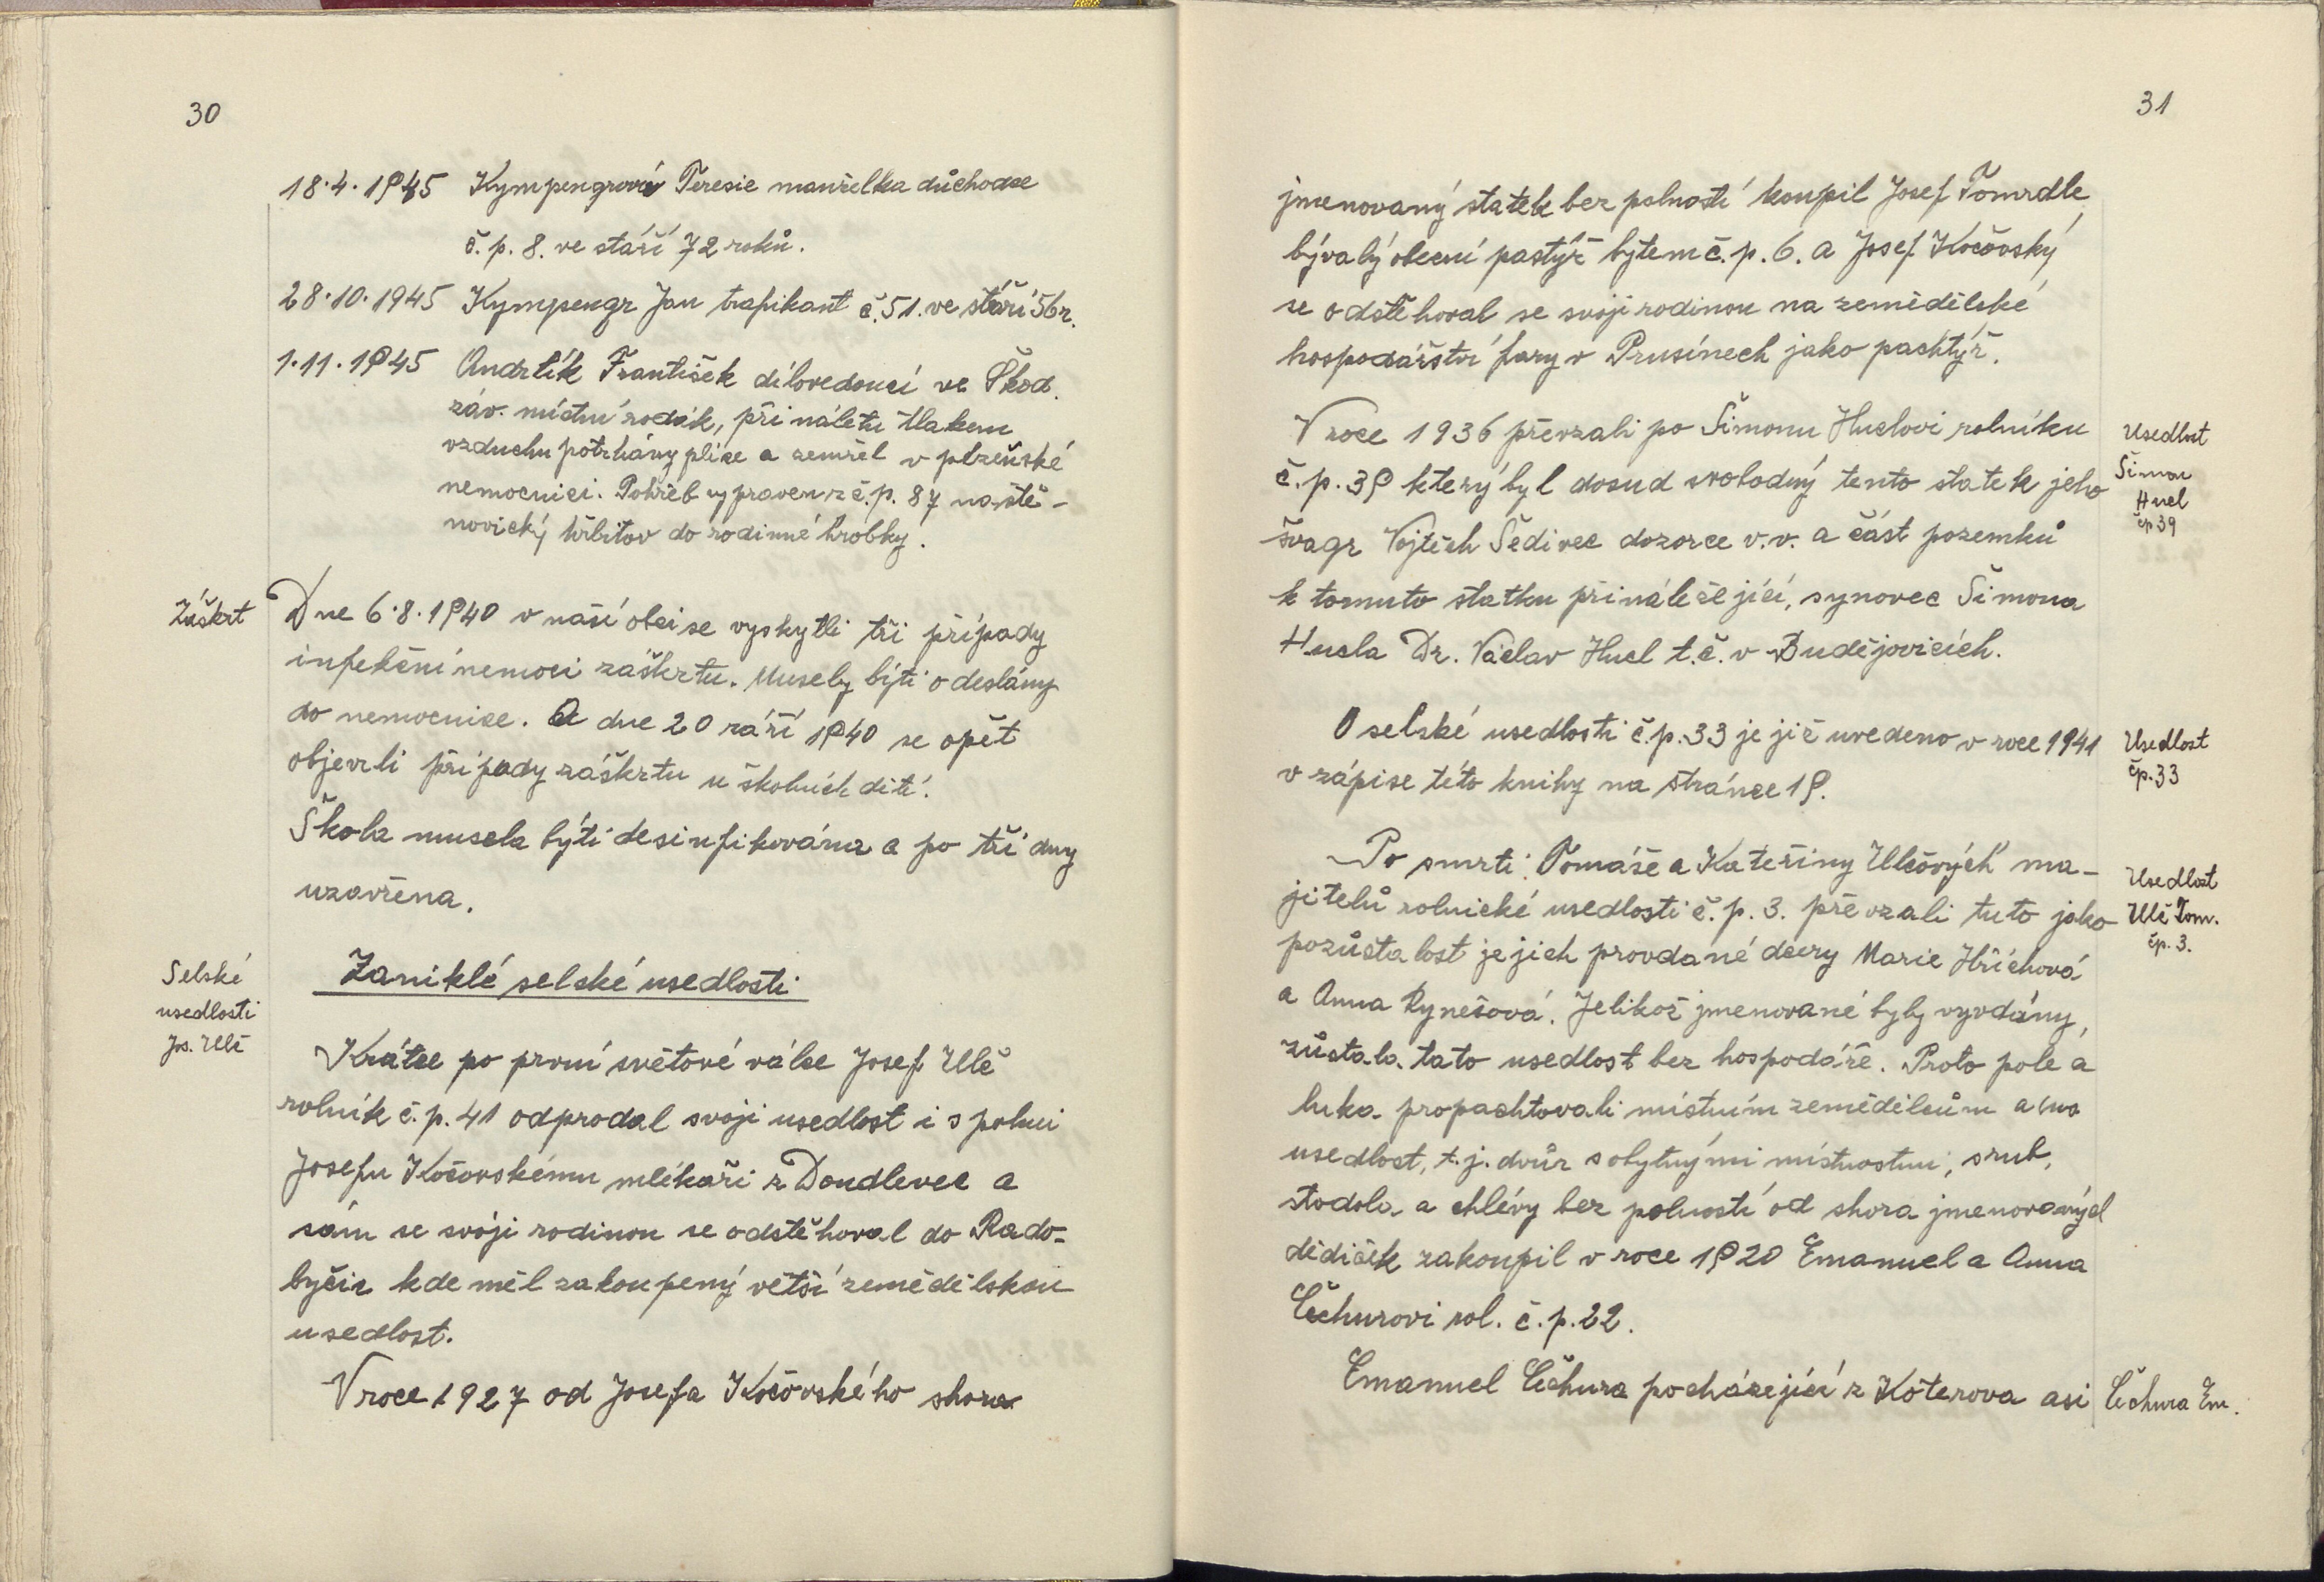 30
18.4.1945 Kympengrová Teresie manželka důchodce
č.p. 8. ve stáří 72 roků.
28.10.1945 Kympengr Jan trafikant č.51. ve stáří 56 r.
1.11.1945 Andrlík František dílovedoucí ve Škod.
záv. místní rodák, při náletu tlakem
vzduchu potrhány plíce a zemřel v plzeňské
nemocnici. Pohřeb vypraven z č.p. 87 na ště-
novický hřbitov do rodinné hrobky.
Záškrt
Dne 6.8.1940 v naší obci se vyskytli tři případy
infekční nemoci záškrtu. Musely býti odeslány
do nemocnice. A dne 20 září 1940 se opět
objevili případy záškrtu u školních dětí.
Škola musela býti desinfikována a po tři dny
uzavřena.
Selské
usedlosti
Jos. Ulč
Zaniklé selské usedlosti
Krátce po první světové válce Josef Ulč
rolník č.p. 41 odprodal svoji usedlost i s polmi
Josefu Kočovskému mlékaři z Doudlevec a
sám se svoji rodinou se odstěhoval do Rado-
byčic kde měl zakoupený větší zemědělskou
usedlost.
V roce 1927 od Josefa Kočovského shora
31
jmenovaný statek bez polností koupil Josef Tomrdle
bývalý obecní pastýř bytem č.p. 6. a Josef Kočovský
se odstěhoval se svoji rodinou na zemědělské
hospodářství fary v Prusinech jako pachtýř.
V roce 1936 převzali po Šimonu Huclovi rolníku
č.p. 39 který byl dosud svobodný tento statek jeho
švagr Vojtěch Šedivec dozorce v.v. a část pozemků
k tomuto statku přináležející, synovec Šimona
Hucla Dr. Václav Hucl t.č. v Budějovicích.
Usedlost
Šimon
Hucl
čp 39
O selské usedlosti č.p. 33 je již uvedeno v roce 1941
v zápise této knihy na stránce 19.
Usedlost
čp. 33
Po smrti Tomáše a Kateřiny Ulčových ma-
jitelů rolnické usedlosti č.p. 3. převzali tuto jako
pozůstalost jejich provdané dcery Marie Hříchová
a Anna Rynešová. Jelikož jmenované byly vyvdány,
zůstala tato usedlost bez hospodáře. Proto pole a
luka propachtovali místním zemědělcům a
usedlost, t.j. dvůr s obytnými místnostmi, srub,
stodola a chlévy bez polností od shora jmenovaných
dědiček zakoupil v roce 1920 Emanuel a Anna
Čechurovi rol. č.p. 22.
Usedlost
Ulč Tom.
čp. 3.
Emanuel Čechura pocházející z Koterova asi
Čechura Em.